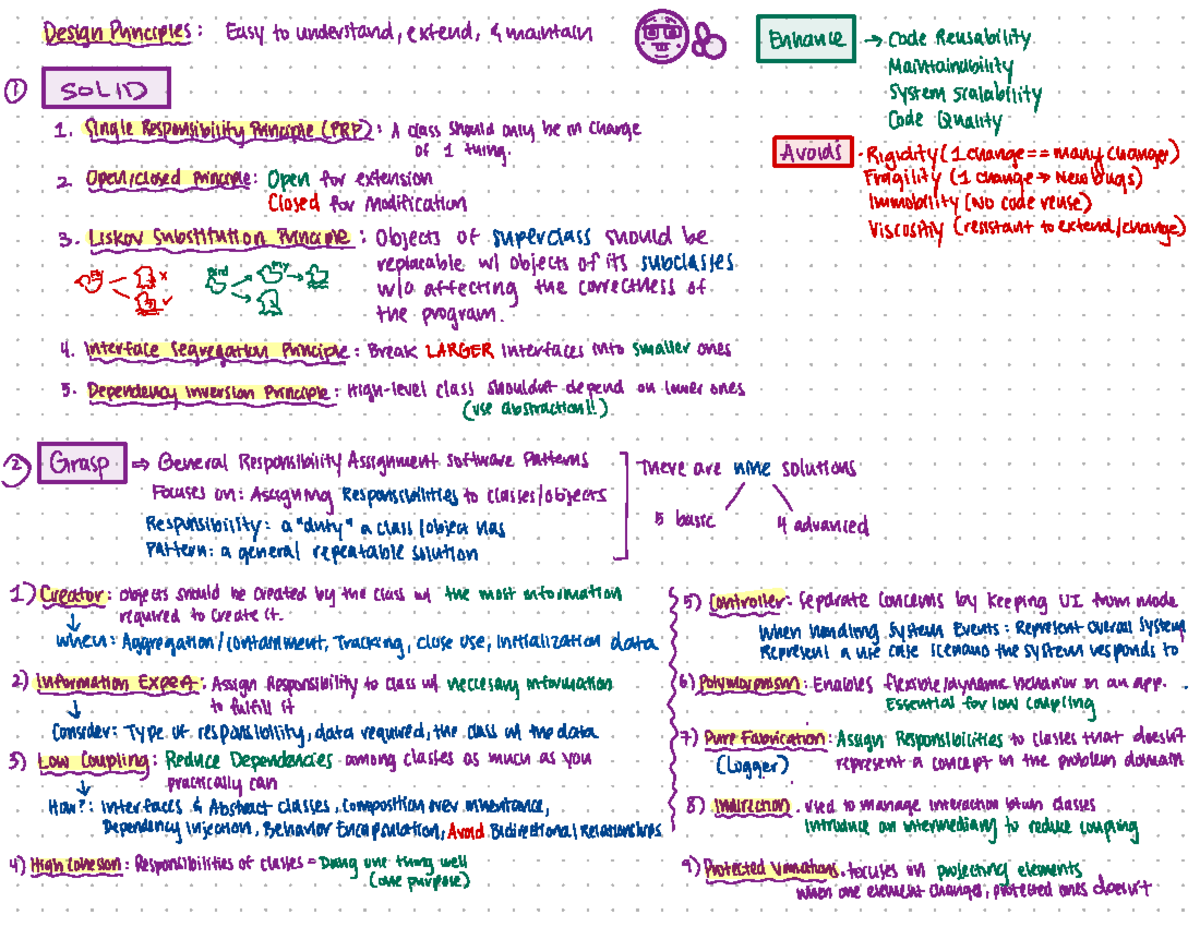 Design Principles: Easy to understand, extend, & maintain
Enhance → Code Reusability
Maintainability
System Scalability
Code Quality
Avoids - Rigidity (1 change == many changes)
Fragility (1 change → New bugs)
Immobility (No code reuse)
Viscosity (resistant to extend/change)
① SOLID
1. Single Responsibility Principle (PRP): A class should only be in charge
of 1 thing.
2. Open/closed principle: Open for extension
Closed for Modification
3. Liskov Substitution Principle: Objects of superclass should be
replacable w/ objects of its subclasses
w/o affecting the correctness of
the program.
Bird
4. Interface Segregation Principle: Break LARGER interfaces into smaller ones
5. Dependency Inversion Principle: High-level class shouldnt depend on lower ones
(use abstraction!!)
② Grasp ⇒ General Responsibility Assignment Software Patterns
Focuses on: Assigning Responsibilities to classes/objects
Responsibility: a "duty" a class/object has
Pattern: a general repeatable solution
There are nine solutions
5 basic 4 advanced
1) Creator: objects should be created by the class w/ the most information
required to create it.
↓
when: Aggregation/containment, Tracking, close use, initialization data
2) Information Expert: Assign Responsibility to class w/ neccesary information
to fulfill it
↓
Consider: Type of responsibility, data required, the class w/ the data
3) Low Coupling: Reduce Dependencies among classes as much as you
practically can
↓
How?: Interfaces & Abstract classes, composition over inheritance,
Dependency Injection, Behavior Encapsulation, Avoid Bidirectional Relationships
4) High Cohesion: Responsibilities of classes = Doing one thing well
(one purpose)
5) Controller: Separate concerns by keeping UI from mode
When handling System Events: Represent overall System
Represent a use case scenario the system responds to
6) Polymorphism: Enables flexible/dynamic behavior in an app.
Essential for low coupling
7) Pure Fabrication: Assign Responsibilities to classes that doesn't
(Logger) represent a concept in the problem domain
8) Indirection. used to manage interaction btwn classes
introduce an intermediary to reduce coupling
9) Protected Variations. focuses on projecting elements
when one element changes, protected ones doesn't